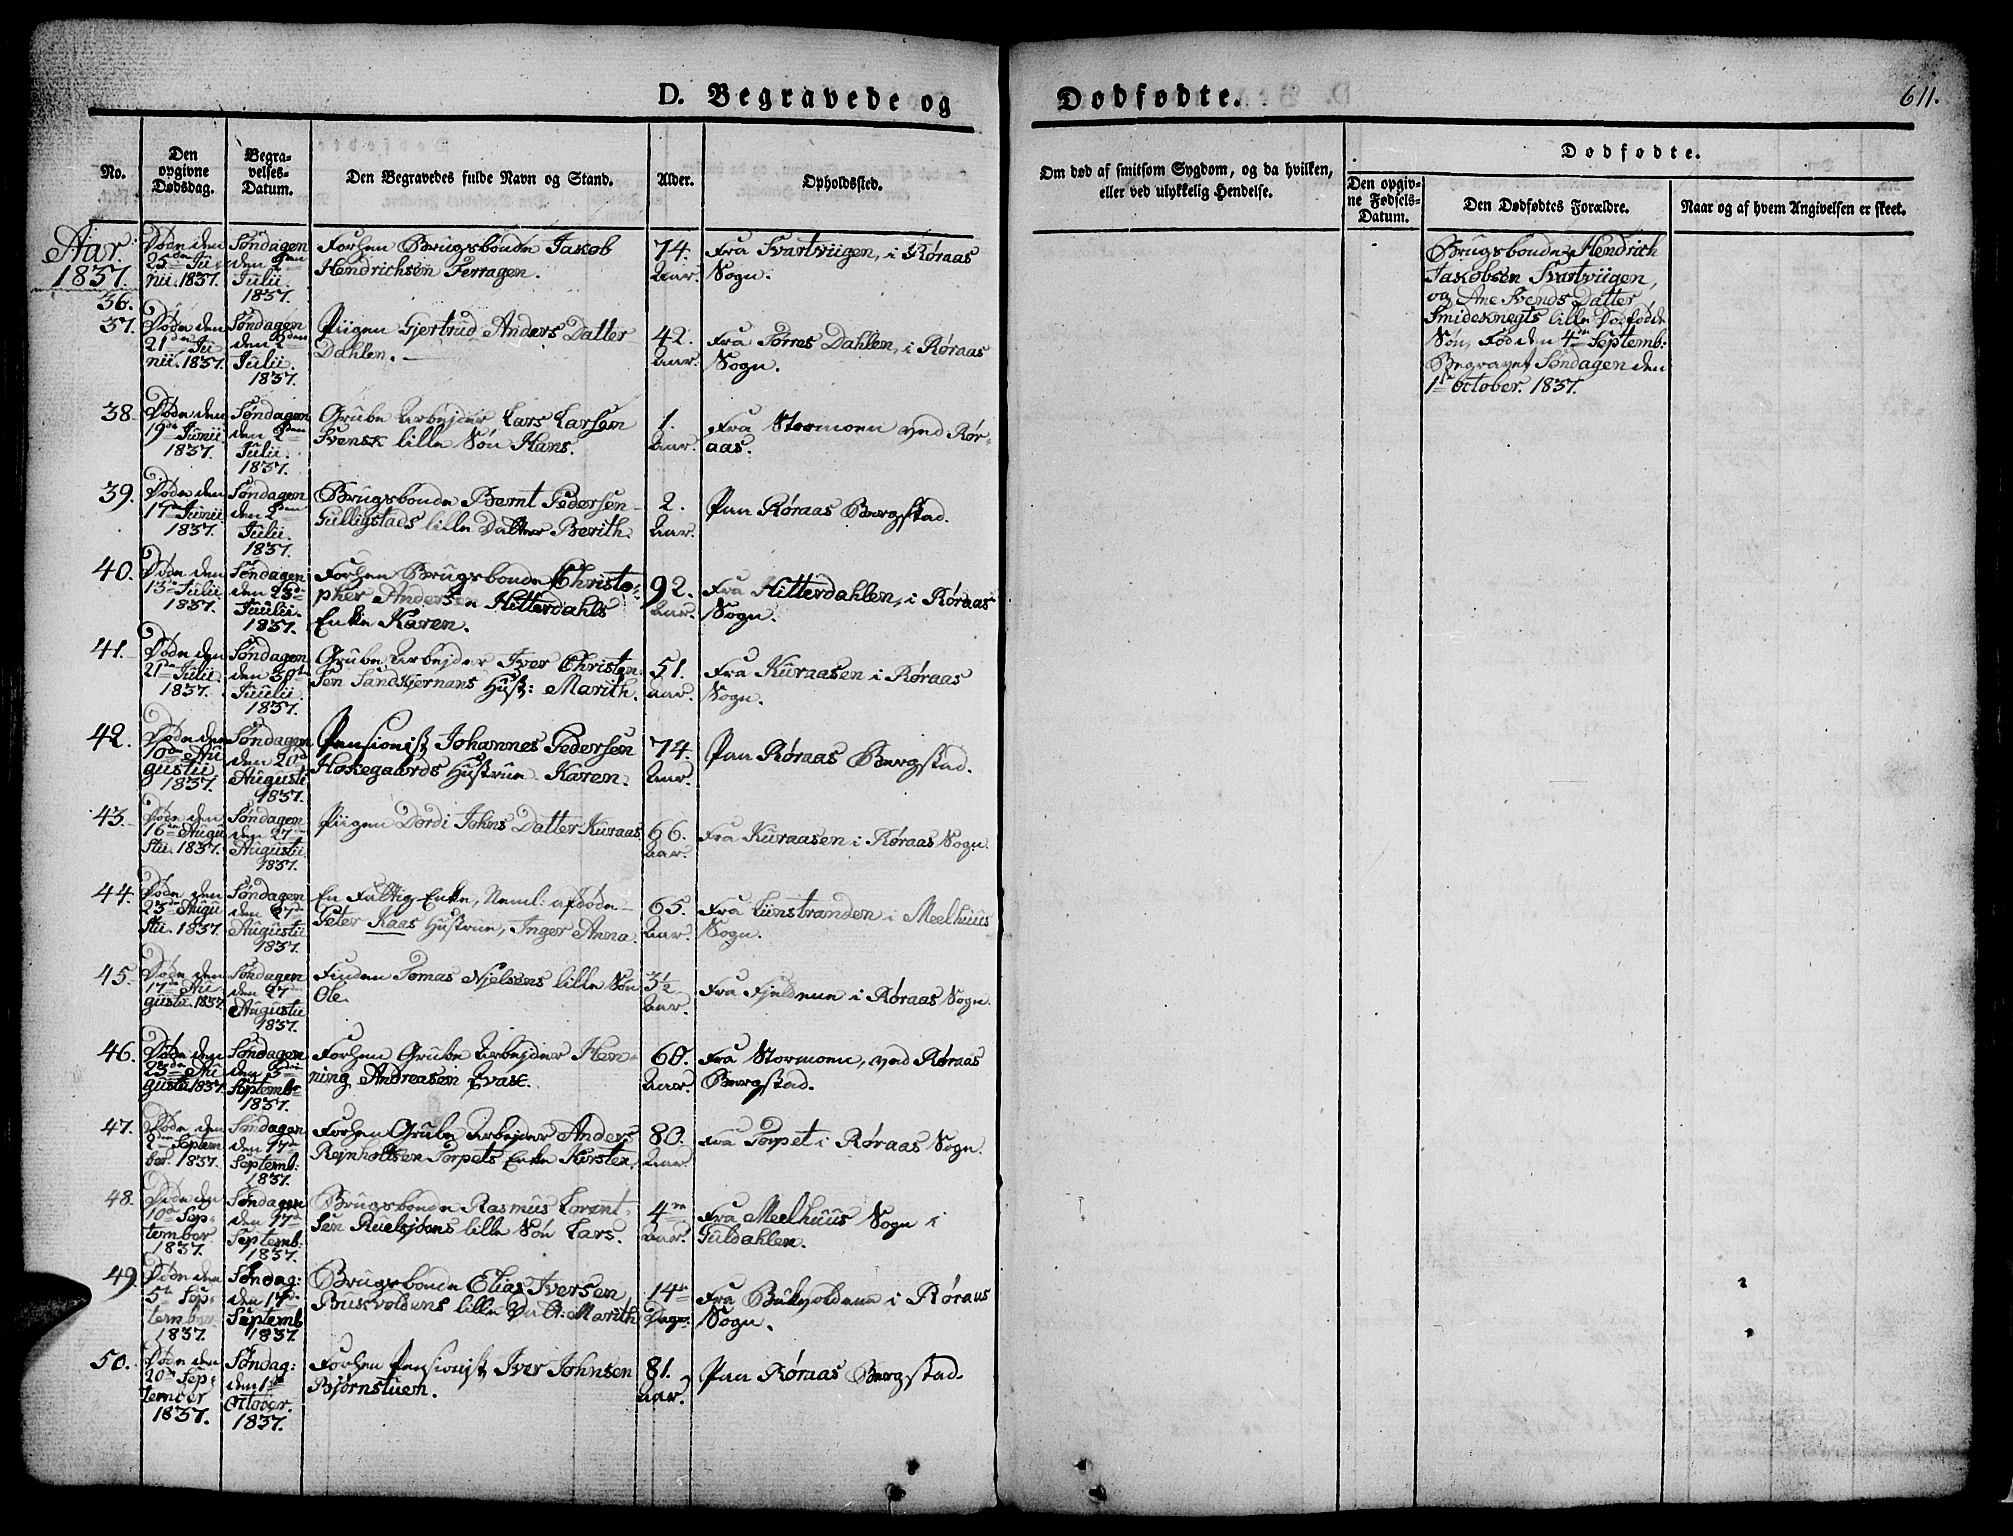 D. Begravede og
Dødfødte.
611.
No.
Den opgivne Dødsdag.
Begravelses-Datum.
Den Begravedes fulde Navn og Stand.
Alder.
Opholdssted.
Om død af smitsom Sygdom, og da hvilken,
eller ved ulykkelig Hendelse.
Dødfødte.
Den opgivne Fødsels-Datum.
Den Dødfødtes Forældre.
Naar og af hvem Angivelsen er skeet.
Aar.
1837.
36.
Døde den
25de Ju-
nii. 1837.
Søndagen
den 2den
Julii.
1837.
Forhen Brugsbonde Jakob
Hendrichsen Ferragen.
74.
Aar.
Fra Svartviigen, i Røraas
Sogn.
37.
Døde den
21de Ju
nii. 1837.
Søndagen
den 2den
Julii.
1837.
Piigen Gjertrud Anders Datter
Dahlen.
42.
Aar.
Fra Torres Dahlen, i Røraas
Sogn.
38.
Døde den
19de Junii
1837.
Søndagen
den 2den
Julii.
1837.
Grube Arbejder Lars Larsen
Svensk lille Søn Hans.
1.
Aar.
Fra Stormoen ved Rør-
aas.
39.
Døde den
17de Junii
1837.
Søndagen
den 2den
Julii.
1837.
Brugsbonde Bernt Pedersen
Gulligstads lille Datter Berith.
2.
Aar.
Paa Røraas Bergstad.
40.
Døde den
13de Julii
1837.
Søndagen
den 23de
Juulii.
1837.
Forhen Brugsbonde Christo-
pher Andersen Hitterdahls
Enke Karen.
92.
Aar.
Fra Hitterdahlen, i Røraas
Sogn.
41.
Døde den
21de Julii
1837.
Søndagen
den 30te
Juulii.
1837.
Grube Arbejder Iver Christen-
sen Sandkjernans Hust: Marith.
51.
Aar.
Fra Kuraasen i Røraas
Sogn.
42.
Døde den
10de Au
gustii
1837.
Søndagen
den 20de
Augusti
1837.
Pensionist Johannes Pedersen
Hokegaards Hustrue Karen.
74.
Aar.
Paa Røraas Bergstad.
43.
Døde den
16de Augu
stii. 1837.
Søndagen
den 27de
Augustii
1837.
Piigen Dordi Johns Datter Kuraas
66.
Aar.
Fra Kuraasen i Røraas Sogn.
44.
Døde den
23de Augu
stii. 1837.
Søndagen
den 27de
Augustii
1837.
En Fattig Enke, Neml: afdøde
Peter Kaas Hustrue, Inger Anna.
65.
Aar.
Fra Lunstranden i Meelhuus
Sogn.
45.
Døde den
17de Au-
gustii. 1837.
Søndagen
den 27de
Augustii
1837.
Finden Tomas Njelsens lille Søn
Ole.
3½
Aar.
Fra Fjeldene i Røraas Sogn.
46.
Døde den
23de Au
gustii 1837.
Søndagen
den 3die
Septemb:
1837.
Forhen Grube Arbejder Hen-
ning Andreasen Evax.
60.
Aar.
Fra Stormoen, ved Røraas
Bergstad.
47.
Døde den
2den Septem
ber. 1837.
Søndagen
den 17de
Septemb:
1837.
Forhen Grube Arbejder Anders
Rejnholtsen Torpets Enke Kirsten.
80.
Aar.
Fra Torpet i Røraas Sogn.
48.
Døde den
10de Sep-
tember
1837.
Søndagen
den 17de
Septemb:
1837.
Brugsbonde Rasmus Lorent-
sen Ruelsjøens lille Søn Lars.
4re
Aar.
Fra Meelhuus Sogn i
Guldahlen.
49.
Døde den
5te Sep-
tember
1837.
Søndag:
den 17de
Septemb
1837.
Brugsbonde Elias Iversen
Bukvoldens lille Datt: Marith
14de
Dage.
Fra Bukvoldene i Røraas
Sogn.
50.
Døde den
20de Sep-
tember
1837.
Søndag:
den 1ste
October.
1837.
Forhen Pensionist Iver Johnsen
Bjørnstuen.
81.
Aar.
Paa Røraas Bergstad.
Brugsbonde Hendrich
Jakobsen Svartviigen,
og Ane Svends Datter
Smideknegts lille Dødfødde
Søn, Fød den 4de Septemb:
Begravet Søndagen den
1ste October. 1837.